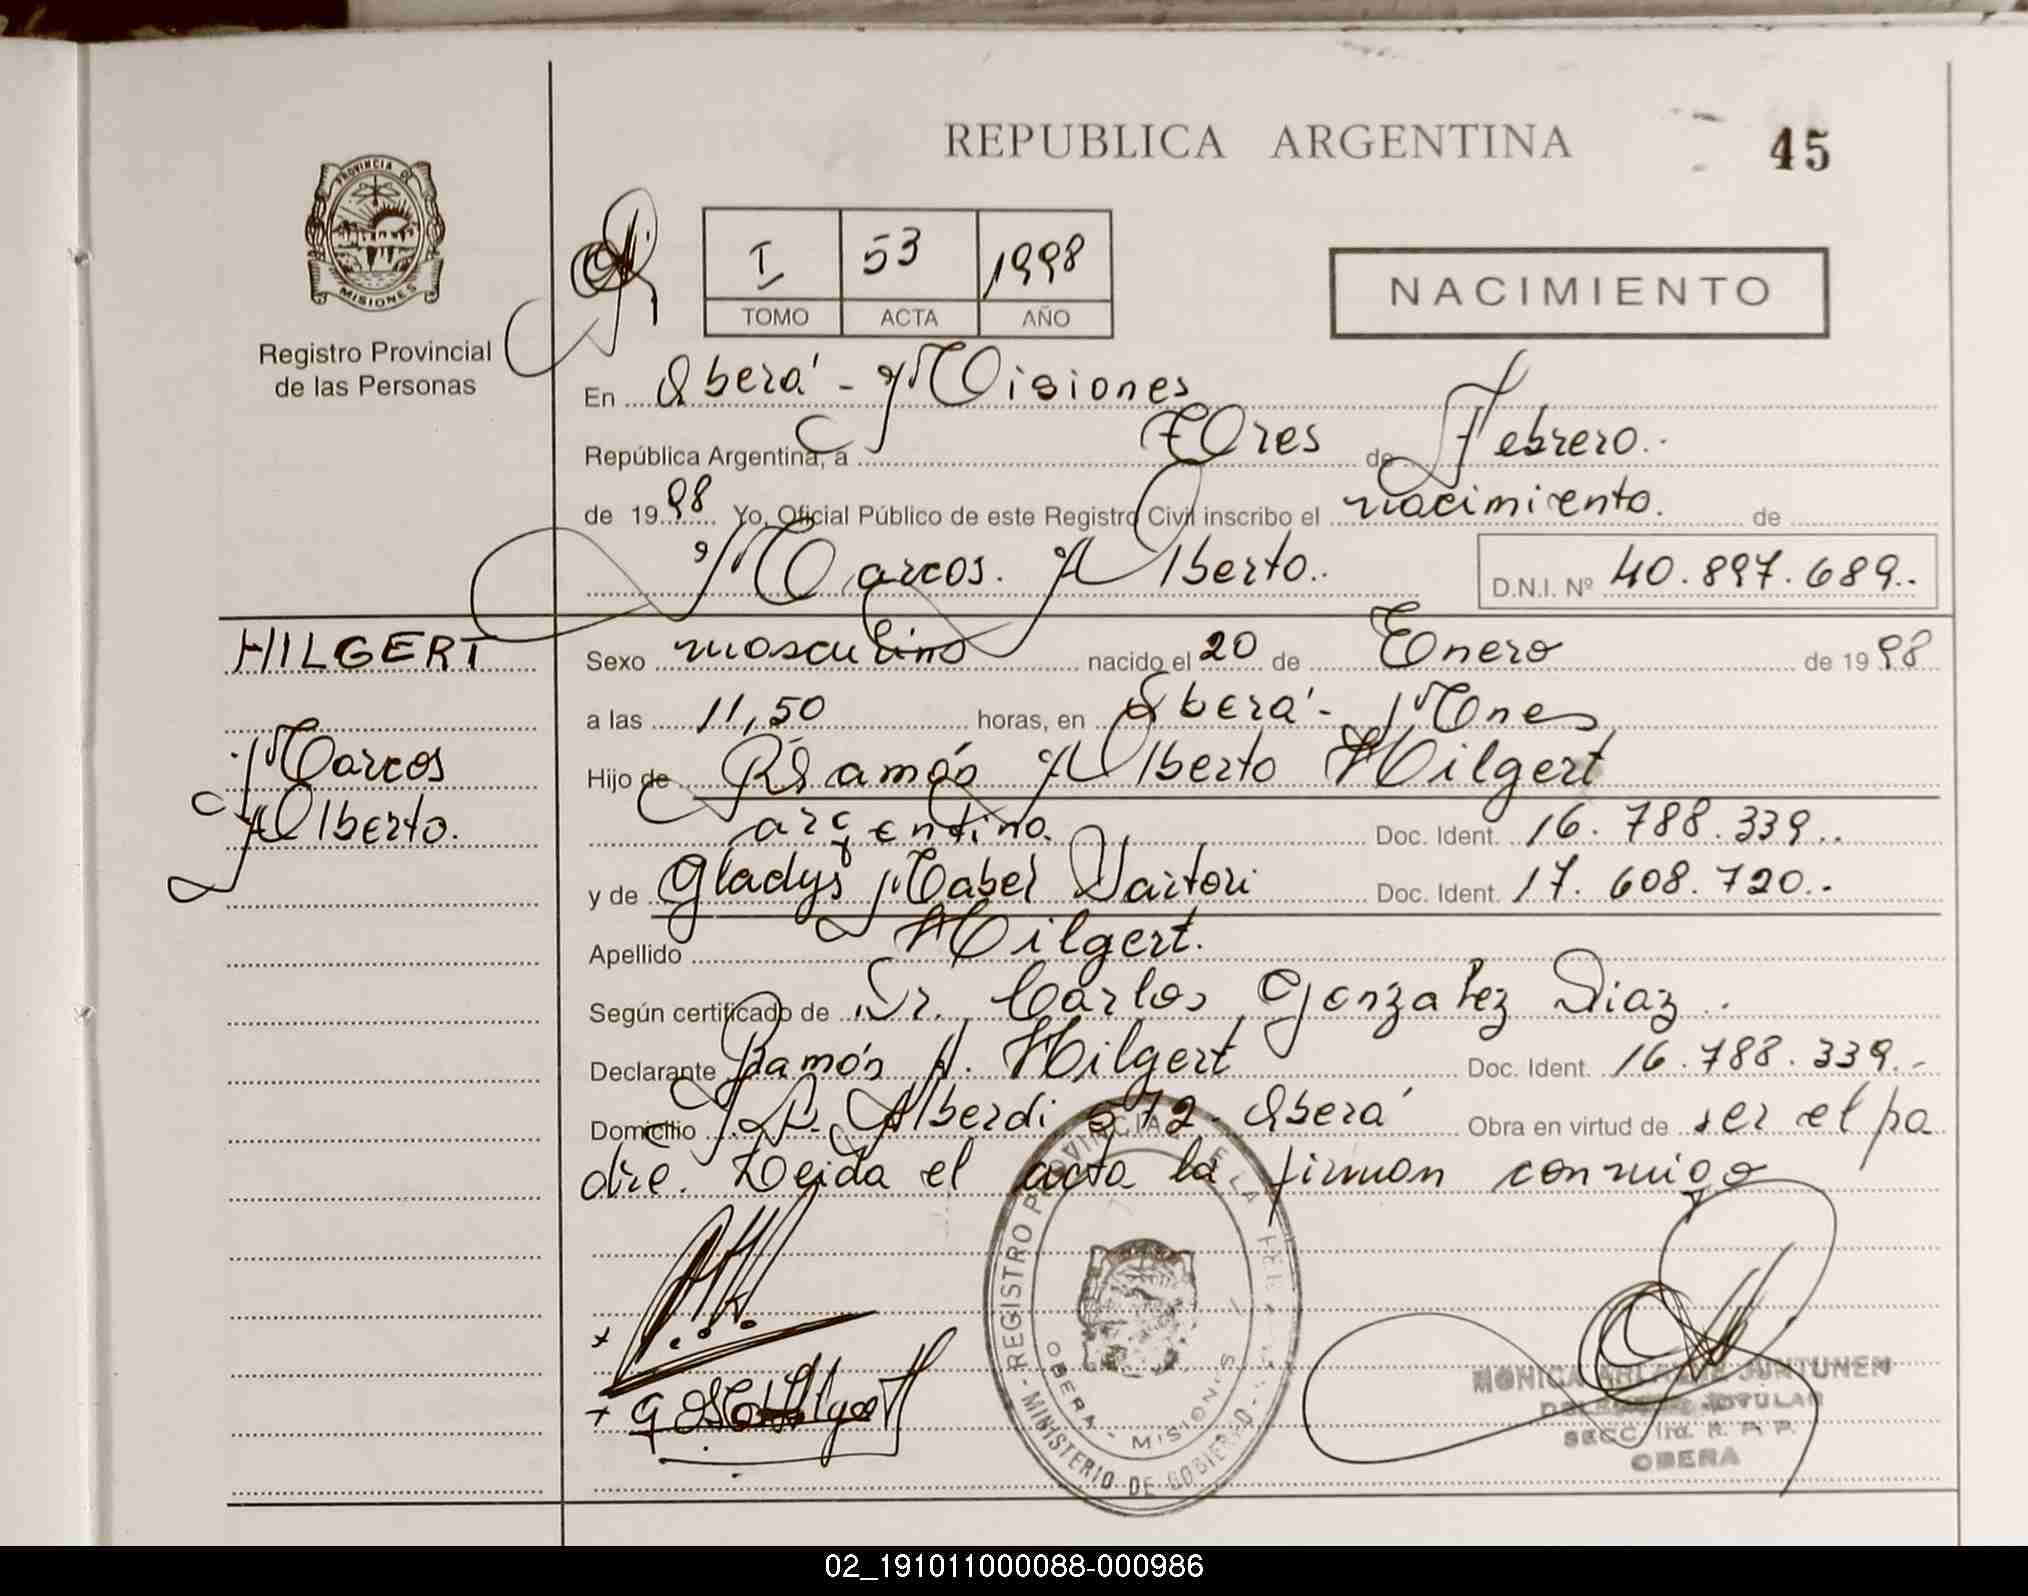 REPUBLICA ARGENTINA
45
PROVINCIA DE
MISIONES
Registro Provincial
de las Personas
I 53 1998
TOMO ACTA AÑO
NACIMIENTO
En Oberá - Misiones
República Argentina, a Tres de Febrero.
de 1998 Yo, Oficial Público de este Registro Civil inscribo el nacimiento. de
Marcos Alberto..
D.N.I. Nº 40.897.689..
HILGERT
Marcos
Alberto.
Sexo masculino nacido el 20 de Enero de 1998
a las 11,50 horas, en Oberá - Mnes
Hijo de Ramón Alberto Hilgert
argentino. Doc. Ident. 16.788.339..
y de Gladys Mabel Sartori Doc. Ident. 17.608.720..
Apellido Hilgert.
Según certificado de Dr. Carlos Gonzalez Diaz.
Declarante Ramón A. Hilgert Doc. Ident. 16.788.339.-
Domicilio J.B. Alberdi 572 - Oberá Obra en virtud de ser el pa
dre. Leida el acta la firman conmigo
REGISTRO PROVINCIAL DE LA
OBERA - MISIONES
MINISTERIO DE GOBIERNO
MONICA JUNTUNEN
TITULAR
SECC. 1ra. R. P. P.
OBERA
02_191011000088-000986